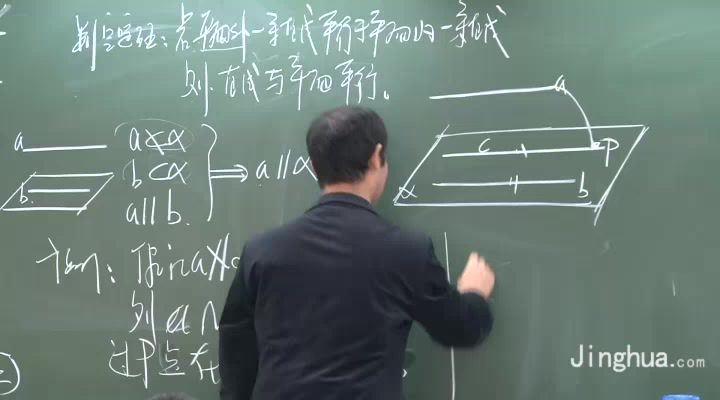 判定定理:若平面外一条直线平行于平面内一条直线
则直线与平面平行。
a
b
a⊄α
b⊂α
a∥b.
⇒ a∥α
a
c
P
α
b
证明:假设a∦
则a∩
过P点在
Jinghua.com